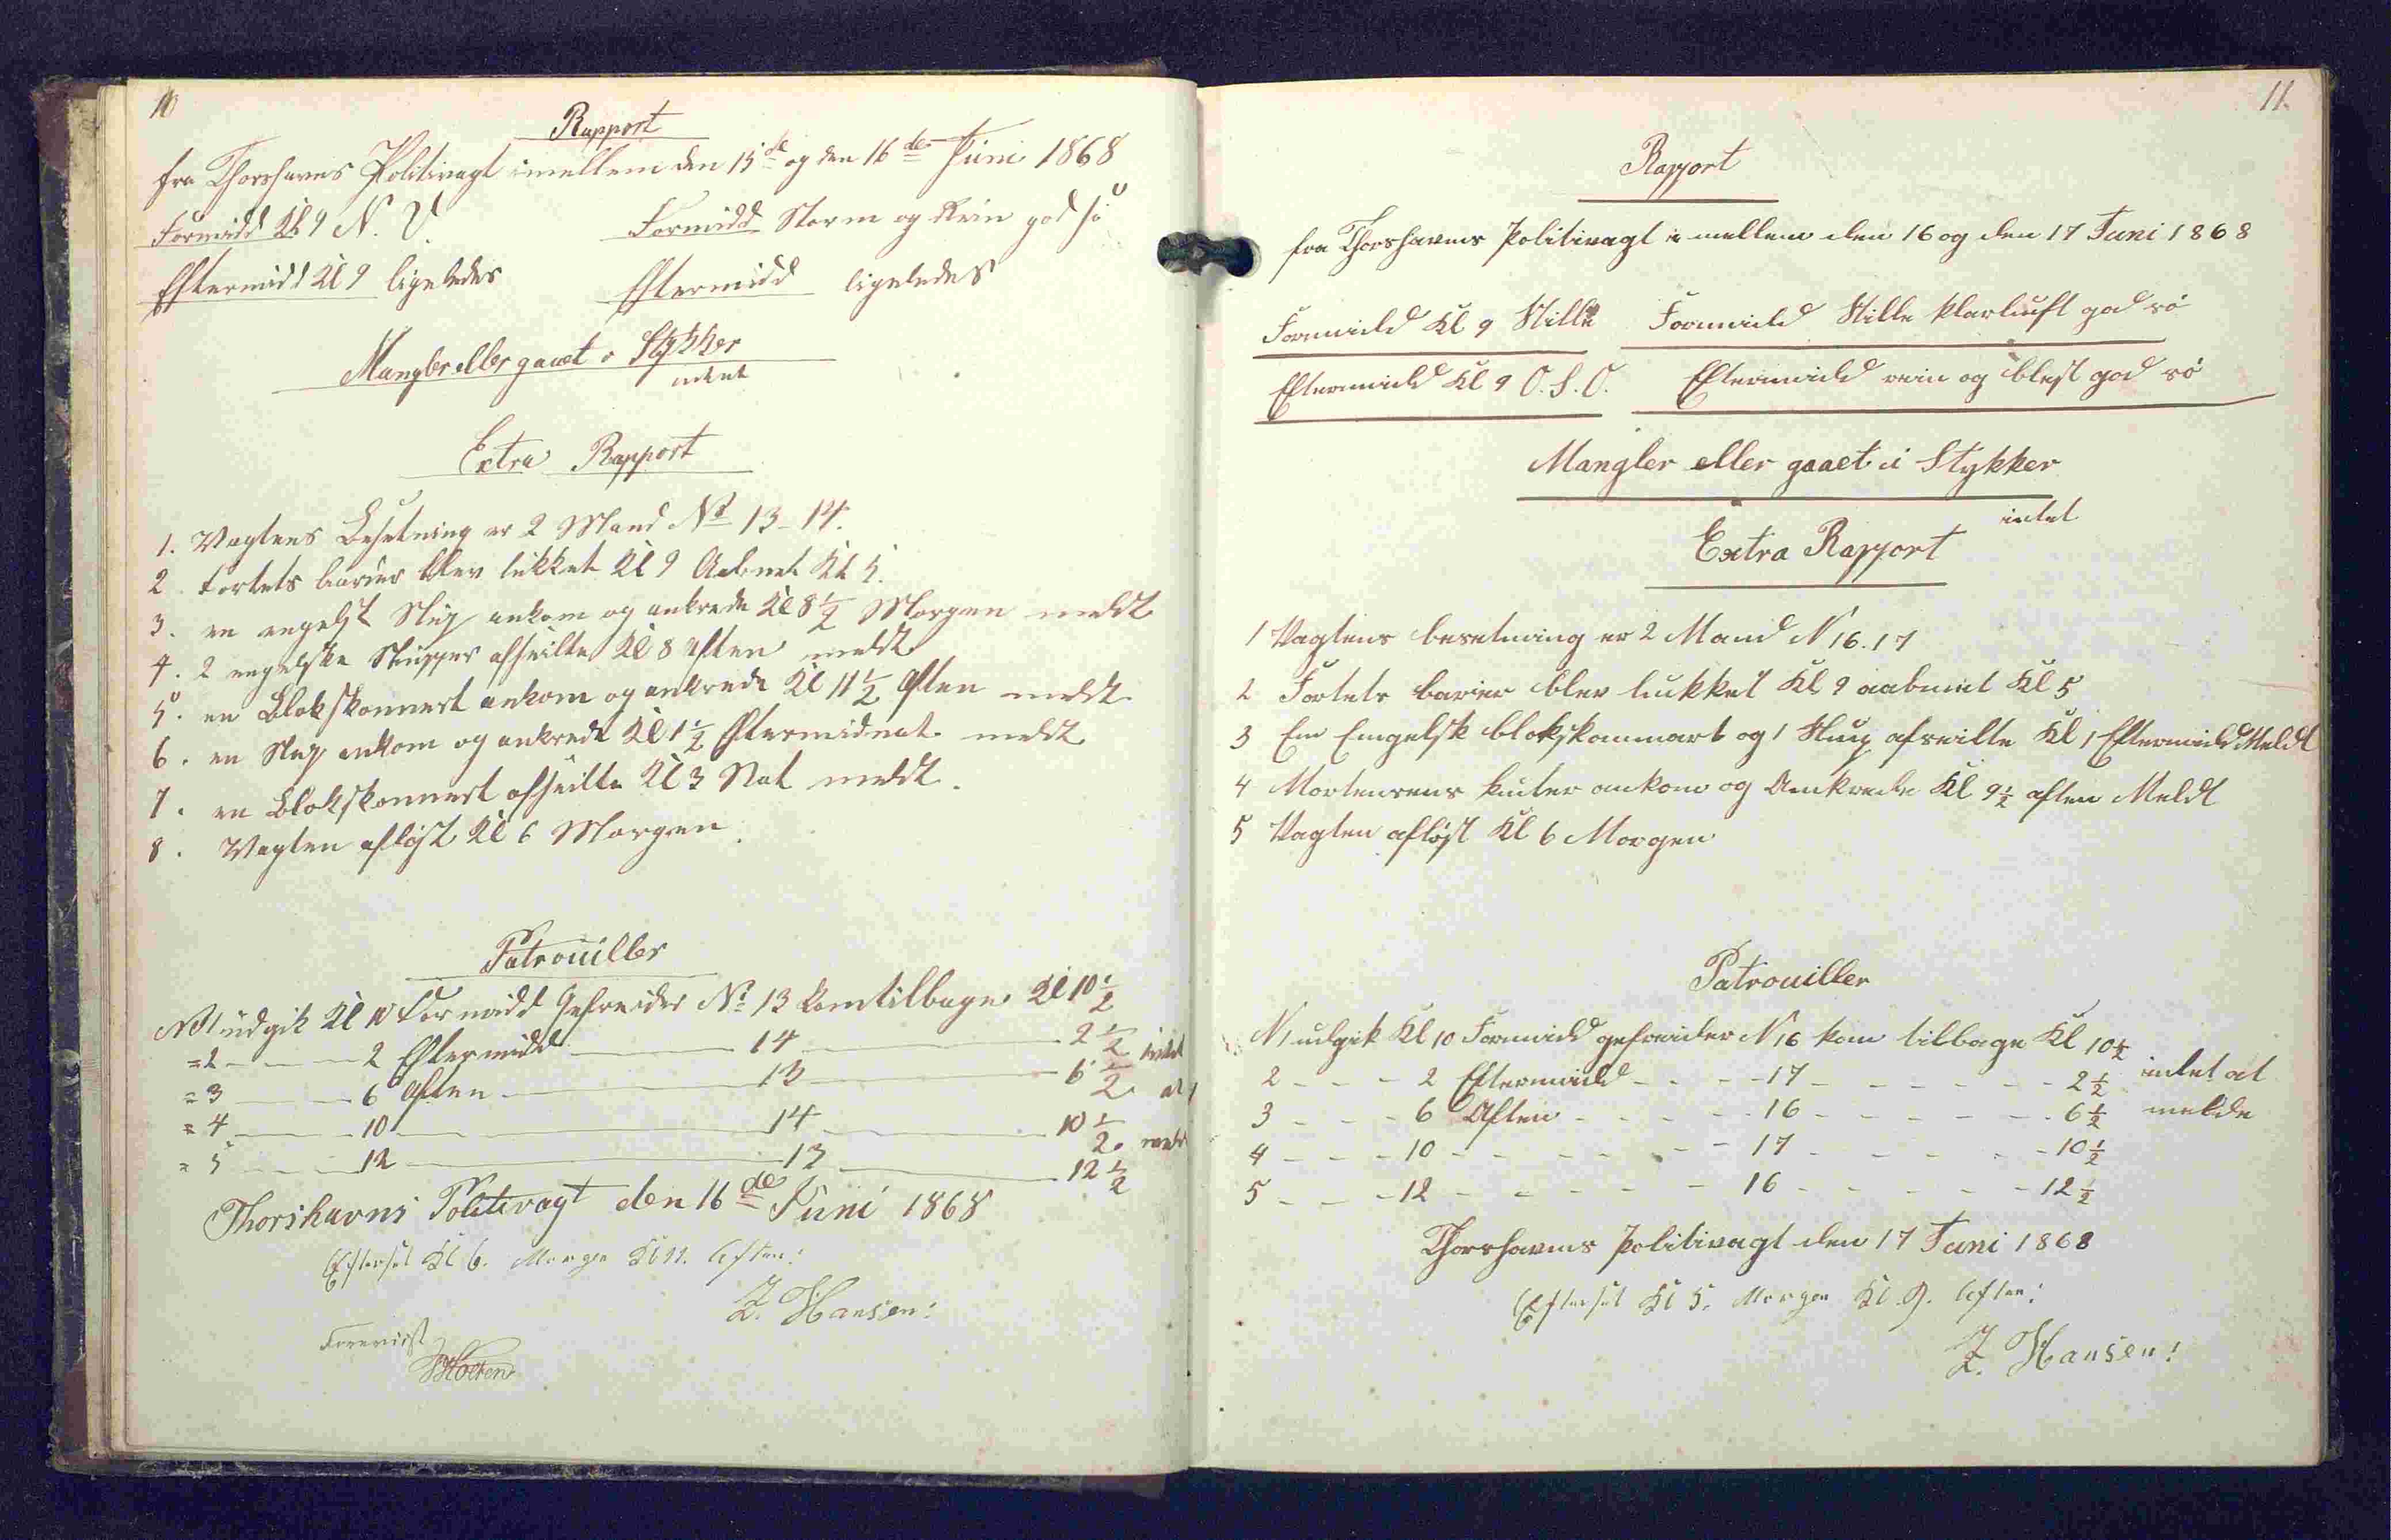 10
Rapport
fra Thorshavns Politivagt imellem den 15de og den 16de Juni 1868
Formidd Kl 9 N. V. Formidd Storm og Rein god sö
Eftermidd Kl 9 ligeledes Eftermidd ligeledes
Mangler eller gaaet i Stykker
intet
Extra Rapport
1. Vagtens Besetning er 2 Mand No 13-14.
2. Fortets barier blev lukket Kl 9 Aabnet Kl 5.
3. en engelsk Slup ankom og ankrede Kl 8 1/2 Morgen meldt
4. 2 engelske Slupper afseilte Kl 8 Aften meldt
5. en Blokskonnert ankom og ankrede Kl 11 1/2 Aften meldt
6. en Slup ankom og ankrede Kl 1 1/2 Eftermidnat meldt
7. en Blokskonnert afseilte Kl 3 Nat meldt.
8. Vagten aflöst Kl 6 Morgen.
Patrouiller
No 1 udgik Kl 10 Formidd Gefreider No 13 kom tilbage Kl 10 1/2
= 2 — — 2 Eftermidd — 14 — 2 1/2 intet
= 3 — — 6 Aften — 13 — 6 1/2 at
= 4 — — 10 — 14 — 10 1/2
= 5 — — 12 — 13 — 12 1/2
Thorshavns Politivagt den 16de Juni 1868
Efterset Kl 6. Morgen Kl 11. Aften!
Z. Hansen!
Foreviist
11.
Rapport
fra Thorshavns Politivagt i mellem den 16 og den 17 Juni 1868
Formidd Kl 9 Stille Formidd Stille klarluft god sö
Eftermidd Kl 9 O. S. O. Eftermidd rein og blest god sö
Mangler eller gaaet i Stykker
intet
Extra Rapport
1 Vagtens besetning er 2 Mand N 16. 17
2 Fortets barier blev lukket Kl 9 aabnet Kl 5
3 En Engelsk blokskonnart og 1 Slup afseilte Kl 1 Eftermidd Meldt
4 Mortensens kutter ankom og Ankrede Kl 9 1/2 aften Meldt
5 Vagten aflöst Kl 6 Morgen
Patrouiller
N 1 udgik Kl 10 Formidd gefreider N 16 kom tilbage Kl 10 1/2
2 - - - 2 Eftermidd - - - 17 - - - - - - 2 1/2 intet at
3 - - - 6 Aften - - - - 16 - - - - - - 6 1/2 melde
4 - - - 10 - - - - - - 17 - - - - - 10 1/2
5 - - - 12 - - - - - - 16 - - - - - 12 1/2
Thorshavns Politivagt den 17 Juni 1868
Efterset Kl 5. Morgen Kl 9. Aften!
Z. Hansen!